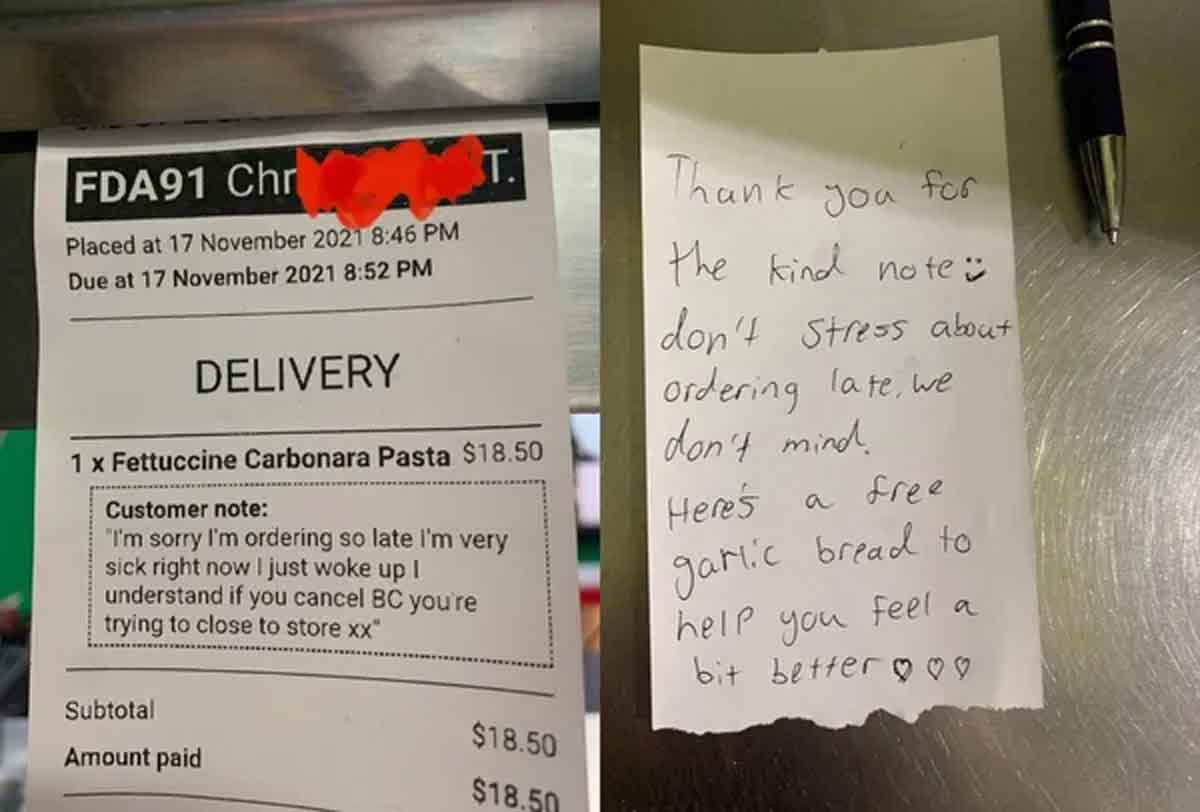 FDA91 Chr T.
Placed at 17 November 2021 8:46 PM
Due at 17 November 2021 8:52 PM
DELIVERY
1 x Fettuccine Carbonara Pasta $18.50
Customer note:
"I'm sorry I'm ordering so late I'm very
sick right now I just woke up I
understand if you cancel BC you're
trying to close to store xx"
Subtotal $18.50
Amount paid $18.50
Thank you for
the kind note :)
don't stress about
ordering late, we
don't mind.
Here's a free
garlic bread to
help you feel a
bit better ♡♡♡